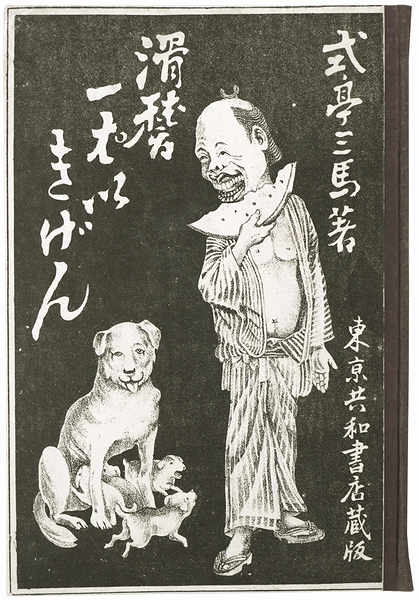 式亭三馬著
滑稽
一ぱい
きげん
東京共和書店藏版